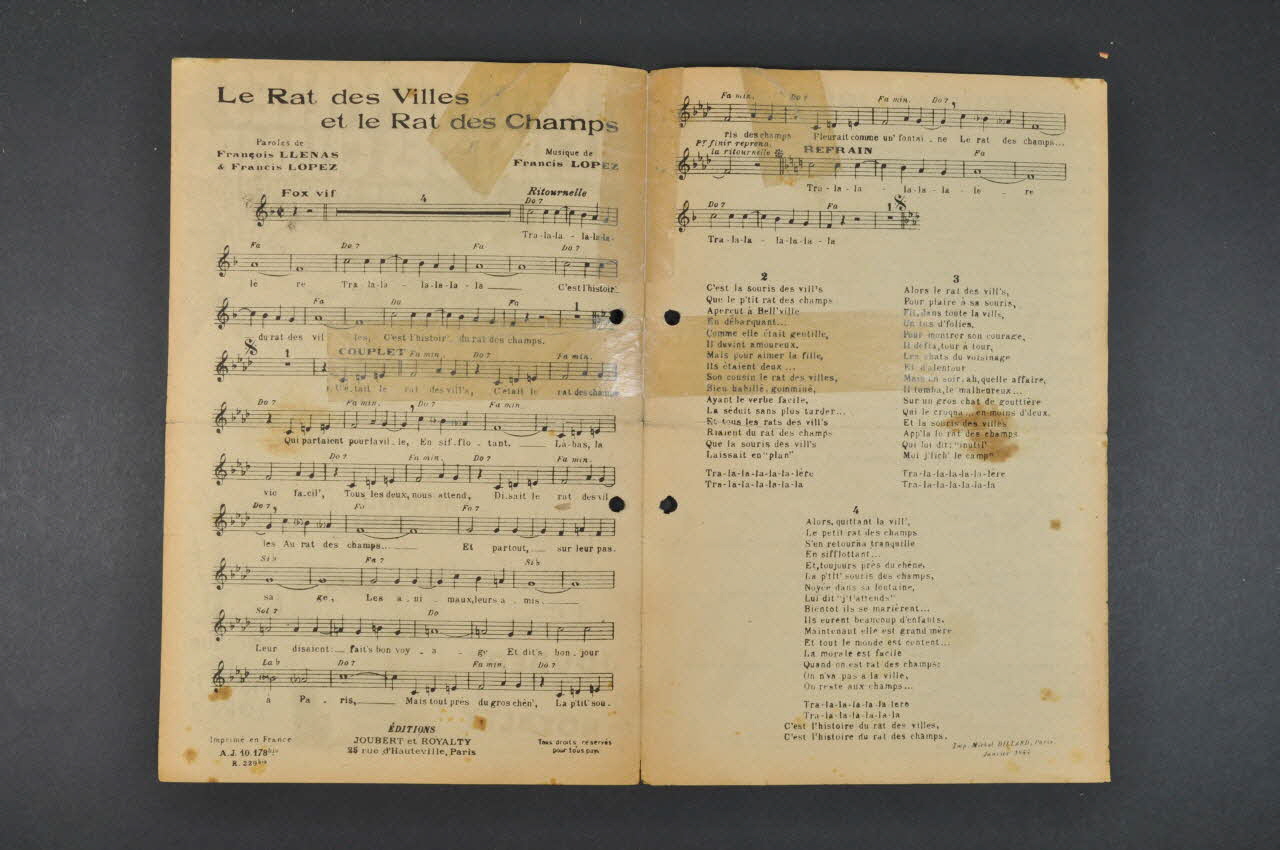 Le Rat des Villes
et le Rat des Champs
Paroles de
François LLENAS
& Francis LOPEZ
Musique de
Francis LOPEZ
Fox vif
4
Ritournelle
Do 7
Tra-la-la - la-la-la-
Fa Do 7 Fa Do 7
lè re Tra-la-la - la-la-la-la C'est l'histoir'
Fa Do Fa 1
du rat des vil les, C'est l'histoir' du rat des champs.
1 COUPLET Fa min. Do 7 Fa min.
C'é.tait le rat des vill's, C'était le rat des champs
Do 7 Fa min. Do 7 Fa min.
Qui partaient pour la vil.le, En sif.flo.tant. Là-bas, la
Do 7 Fa min. Do 7 Fa min.
vie fa.cil', Tous les deux, nous attend, Di.sait le rat des vil
Do 7 Fa Fa 7
les Au rat des champs... Et partout, sur leur pas.
Si♭ Fa 7 Si♭
sa . ge, Les a . ni . maux, leurs a . mis
Sol 7 Do
Leur disaient: fait's bon voy . a . ge Et dit's bon.jour
La♭ Do 7 Fa min. Do 7
à Pa . ris, Mais tout près du gros chên', La p'tit' sou.
Imprimé en France
A.J. 10.178bis
R. 239bis
ÉDITIONS
JOUBERT et ROYALTY
25 rue d'Hauteville, Paris
Tous droits réservés
pour tous pays
Fa min. Do 7 Fa min. Do 7
ris des champs Pleurait comme un' fontai . ne Le rat des champs...
Pr finir reprena.
la ritournelle REFRAIN Fa
Tra-la-la - la-la-la - lè - re
Do 7 Fa 1
Tra-la-la - la-la-la-la
2
C'est la souris des vill's
Que le p'tit rat des champs
Aperçut à Bell'ville
En débarquant...
Comme elle était gentille,
Il devint amoureux.
Mais pour aimer la fille,
Ils étaient deux...
Son cousin le rat des villes,
Bien habillé, gomminé,
Ayant le verbe facile,
La séduit sans plus tarder...
Et tous les rats des vill's
Riaient du rat des champs
Que la souris des vill's
Laissait en "plan"
Tra-la-la-la-la-la-lère
Tra-la-la-la-la-la-la
3
Alors le rat des vill's,
Pour plaire à sa souris,
Fit, dans toute la ville,
Un tas d'folies.
Pour montrer son courage,
Il défia, tour à tour,
Les chats du voisinage
Et d'alentour
Mais un soir, ah, quelle affaire,
Il tomba, le malheureux...
Sur un gros chat de gouttière
Qui le croqua...en moins d'deux.
Et la souris des villes
App'la le rat des champs
Qui lui dit: "inutil'
Moi j'lich' le camp"
Tra-la-la-la-la-la-lère
Tra-la-la-la-la-la-la
4
Alors, quittant la vill',
Le petit rat des champs
S'en retourna tranquille
En sifflottant...
Et, toujours près du chêne,
La p'tit' souris des champs,
Noyée dans sa fontaine,
Lui dit "j't'attends"
Bientôt ils se marièrent...
Ils eurent beaucoup d'enfants.
Maintenant elle est grand'mère
Et tout le monde est content...
La morale est facile
Quand on est rat des champs:
On n'va pas à la ville,
On reste aux champs...
Tra-la-la-la-la-la lère
Tra-la-la-la-la-la-la
C'est l'histoire du rat des villes,
C'est l'histoire du rat des champs.
Imp. Michel DILLARD, Paris.
Janvier